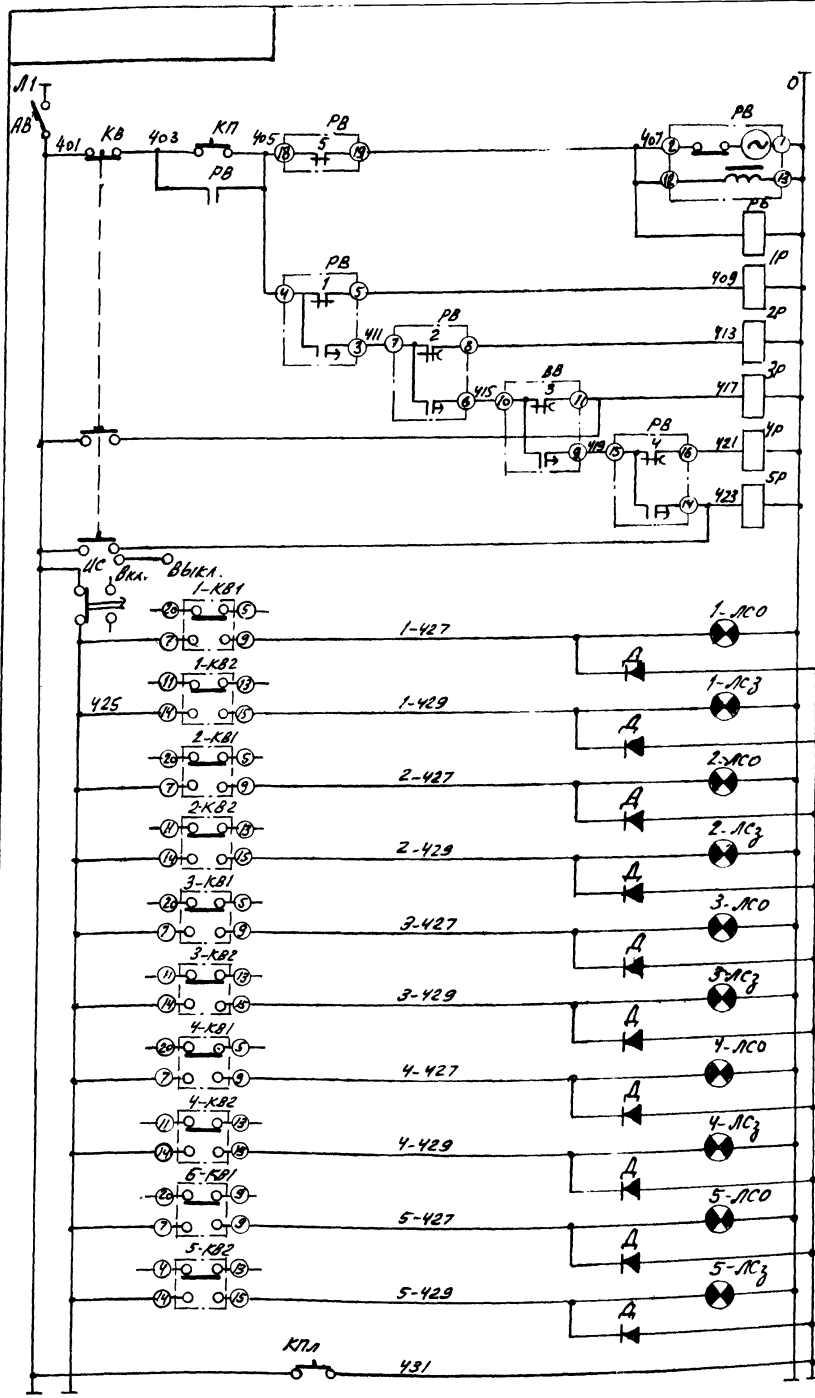 Л1
О
АВ
401
КВ
403
КП
405
РВ
18
5
19
407
РВ
2
1
12
13
РВ
РБ
1Р
РВ
4
1
5
409
2Р
3
411
РВ
7
2
8
413
3Р
6
415
ВВ
10
3
11
417
4Р
9
419
РВ
15
4
16
421
5Р
14
423
ИС
Вкл.
Выкл.
1-КВ1
20
5
7
9
1-427
1-ЛСО
Д
1-КВ2
11
13
425
14
15
1-429
1-ЛСз
Д
2-КВ1
20
5
7
9
2-427
2-ЛСО
Д
2-КВ2
11
13
14
15
2-429
2-ЛСз
Д
3-КВ1
20
5
7
9
3-427
3-ЛСО
Д
3-КВ2
11
13
14
15
3-429
3-ЛСз
Д
4-КВ1
20
5
7
9
4-427
4-ЛСО
Д
4-КВ2
11
13
14
15
4-429
4-ЛСз
Д
5-КВ1
20
9
7
9
5-427
5-ЛСО
Д
5-КВ2
4
13
14
15
5-429
5-ЛСз
Д
КПЛ
431